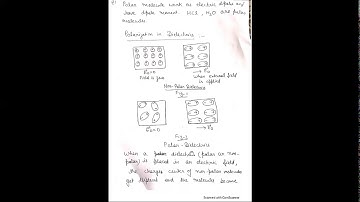 Polar molecule work as electric dipole and
have dipole moment HCl, H2O are polar
molecules.
Polarization in Dielectrics
E0=0
Field is zero
→ E0
When external field
is applied
Non-Polar Dielectrics
Fig-1
E0=0
→ E0
Fig-2
Polar-Dielectrics
When a polar dielectric (polar or non-
polar) is placed in an electric field,
the charges center of non-polar molecule
get displaced and the molecule become
Scanned with CamScanner